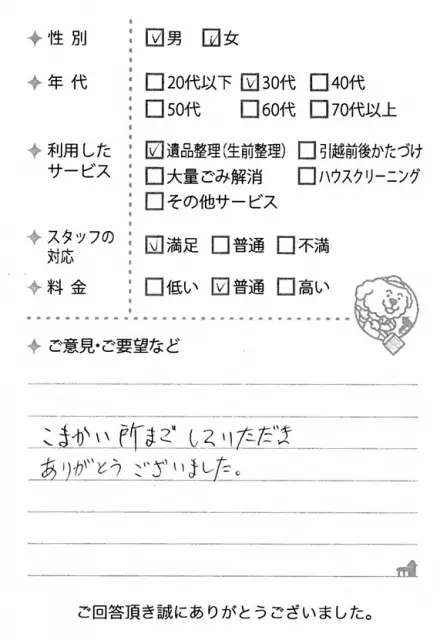 性別 ☑男 ☑女
年代 ☐20代以下 ☑30代 ☐40代
☐50代 ☐60代 ☐70代以上
利用した ☑遺品整理(生前整理) ☐引越前後かたづけ
サービス ☐大量ごみ解消 ☐ハウスクリーニング
☐その他サービス
スタッフの
対応 ☑満足 ☐普通 ☐不満
料金 ☐低い ☑普通 ☐高い
ご意見・ご要望など
こまかい所まで していただき
ありがとうございました。
ご回答頂き誠にありがとうございました。